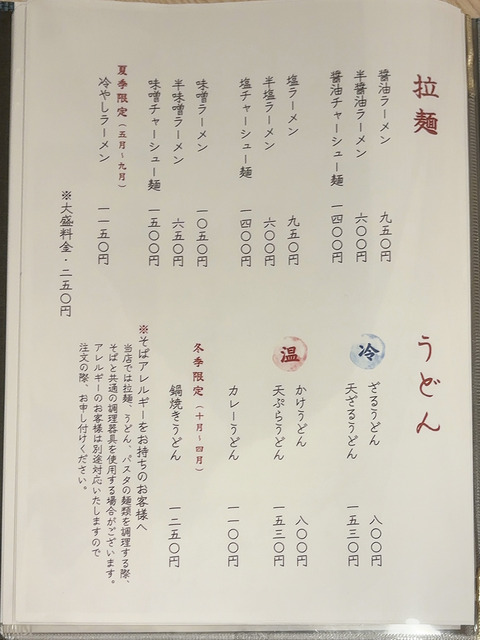 拉麺
醤油ラーメン 九五〇円
半醤油ラーメン 六〇〇円
醤油チャーシュー麺 一四〇〇円
塩ラーメン 九五〇円
半塩ラーメン 六〇〇円
塩チャーシュー麺 一四〇〇円
味噌ラーメン 一〇五〇円
半味噌ラーメン 六五〇円
味噌チャーシュー麺 一五〇〇円
夏季限定(五月~九月)
冷やしラーメン 一一五〇円
※大盛料金・二五〇円
うどん
冷
ざるうどん 八〇〇円
天ざるうどん 一五三〇円
温
かけうどん 八〇〇円
天ぷらうどん 一五三〇円
カレーうどん 一一〇〇円
冬季限定(十月~四月)
鍋焼きうどん 一二五〇円
※そばアレルギーをお持ちのお客様へ
当店では拉麺、うどん、パスタの麺類を調理する際、
そばと共通の調理器具を使用する場合がございます。
アレルギーのお客様は別途対応いたしますので
注文の際、お申し付けください。